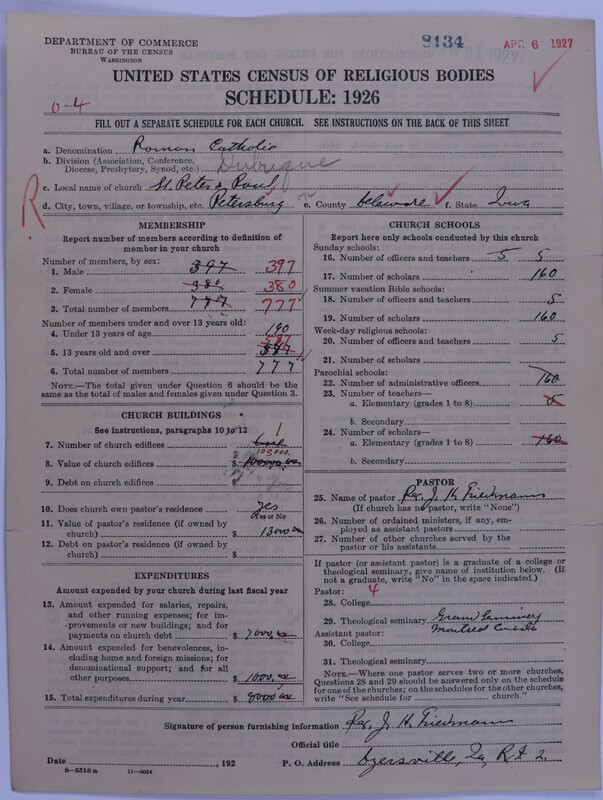 DEPARTMENT OF COMMERCE
BUREAU OF THE CENSUS
WASHINGTON
8134
APR 6 1927
UNITED STATES CENSUS OF RELIGIOUS BODIES
SCHEDULE: 1926
0-4
FILL OUT A SEPARATE SCHEDULE FOR EACH CHURCH. SEE INSTRUCTIONS ON THE BACK OF THIS SHEET
a. Denomination Roman Catholic
b. Division (Association, Conference, Diocese, Presbytery, Synod, etc.) Dubuque
c. Local name of church St. Peter & Paul
d. City, town, village, or township, etc. Petersburg e. County Delaware f. State Iowa
R
MEMBERSHIP
Report number of members according to definition of
member in your church
Number of members, by sex:
1. Male 397 397
2. Female 380 380
3. Total number of members 777 777
Number of members under and over 13 years old:
4. Under 13 years of age 190
5. 13 years old and over 587
6. Total number of members 777
NOTE.—The total given under Question 6 should be
the same as the total of males and females given under Question 3.
CHURCH BUILDINGS
See instructions, paragraphs 10 to 12
7. Number of church edifices One 1
8. Value of church edifices $ 100,000
9. Debt on church edifices $
10. Does church own pastor's residence yes
Yes or No
11. Value of pastor's residence (if owned by
church) $ 13000
12. Debt on pastor's residence (if owned by
church) $
EXPENDITURES
Amount expended by your church during last fiscal year
13. Amount expended for salaries, repairs,
and other running expenses; for im-
provements or new buildings; and for
payments on church debt $ 7000.00
14. Amount expended for benevolences, in-
cluding home and foreign missions; for
denominational support; and for all
other purposes $ 1000.00
15. Total expenditures during year $ 8000.00
CHURCH SCHOOLS
Report here only schools conducted by this church
Sunday schools:
16. Number of officers and teachers 5 5
17. Number of scholars 160
Summer vacation Bible schools:
18. Number of officers and teachers 5
19. Number of scholars 160
Week-day religious schools:
20. Number of officers and teachers 5
21. Number of scholars
Parochial schools:
22. Number of administrative officers 160
23. Number of teachers—
a. Elementary (grades 1 to 8) 5
b. Secondary
24. Number of scholars—
a. Elementary (grades 1 to 8) 160
b. Secondary
PASTOR
25. Name of pastor Rev. J. H. Friedmann
(If church has no pastor, write "None")
26. Number of ordained ministers, if any, em-
ployed as assistant pastors
27. Number of other churches served by the
pastor or his assistants
If pastor (or assistant pastor) is a graduate of a college or
theological seminary, give name of institution below. (If
not a graduate, write "No" in the space indicated.)
Pastor: 4
28. College
29. Theological seminary Grand Seminary
Montreal
Assistant pastor:
30. College
31. Theological seminary
NOTE.—Where one pastor serves two or more churches,
Questions 28 and 29 should be answered only on the schedule
for one of the churches; on the schedules for the other churches,
write "See schedule for church."
Signature of person furnishing information Rev. J. H. Friedmann
Official title
Date , 192 P. O. Address Dyersville, Ia, Rt 2.
8-5518 a 11-9034